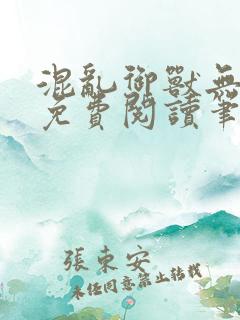 混亂御獸無
免費閱讀筆
張東安
未经同意禁止转载